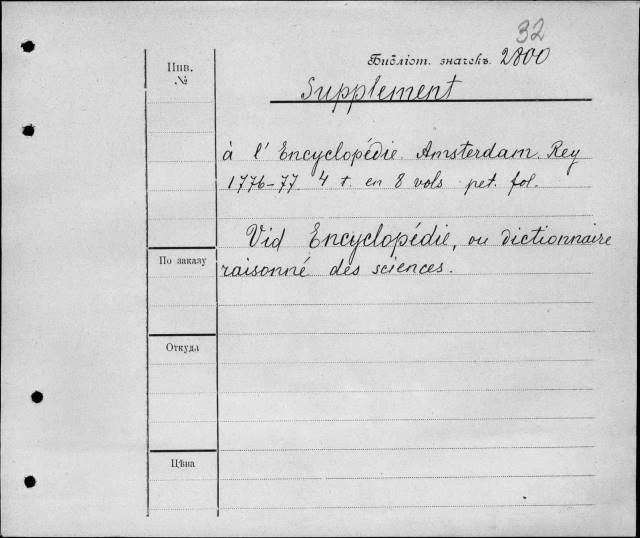 32
Инв.
№
Библіот. значекъ 2800
Supplement
à l' Encyclopédie. Amsterdam. Rey
1776-77. 4 t. en 8 vols pet. fol.
Vid Encyclopédie, ou dictionnaire
raisonné des sciences.
По заказу
Откуда
Цѣна